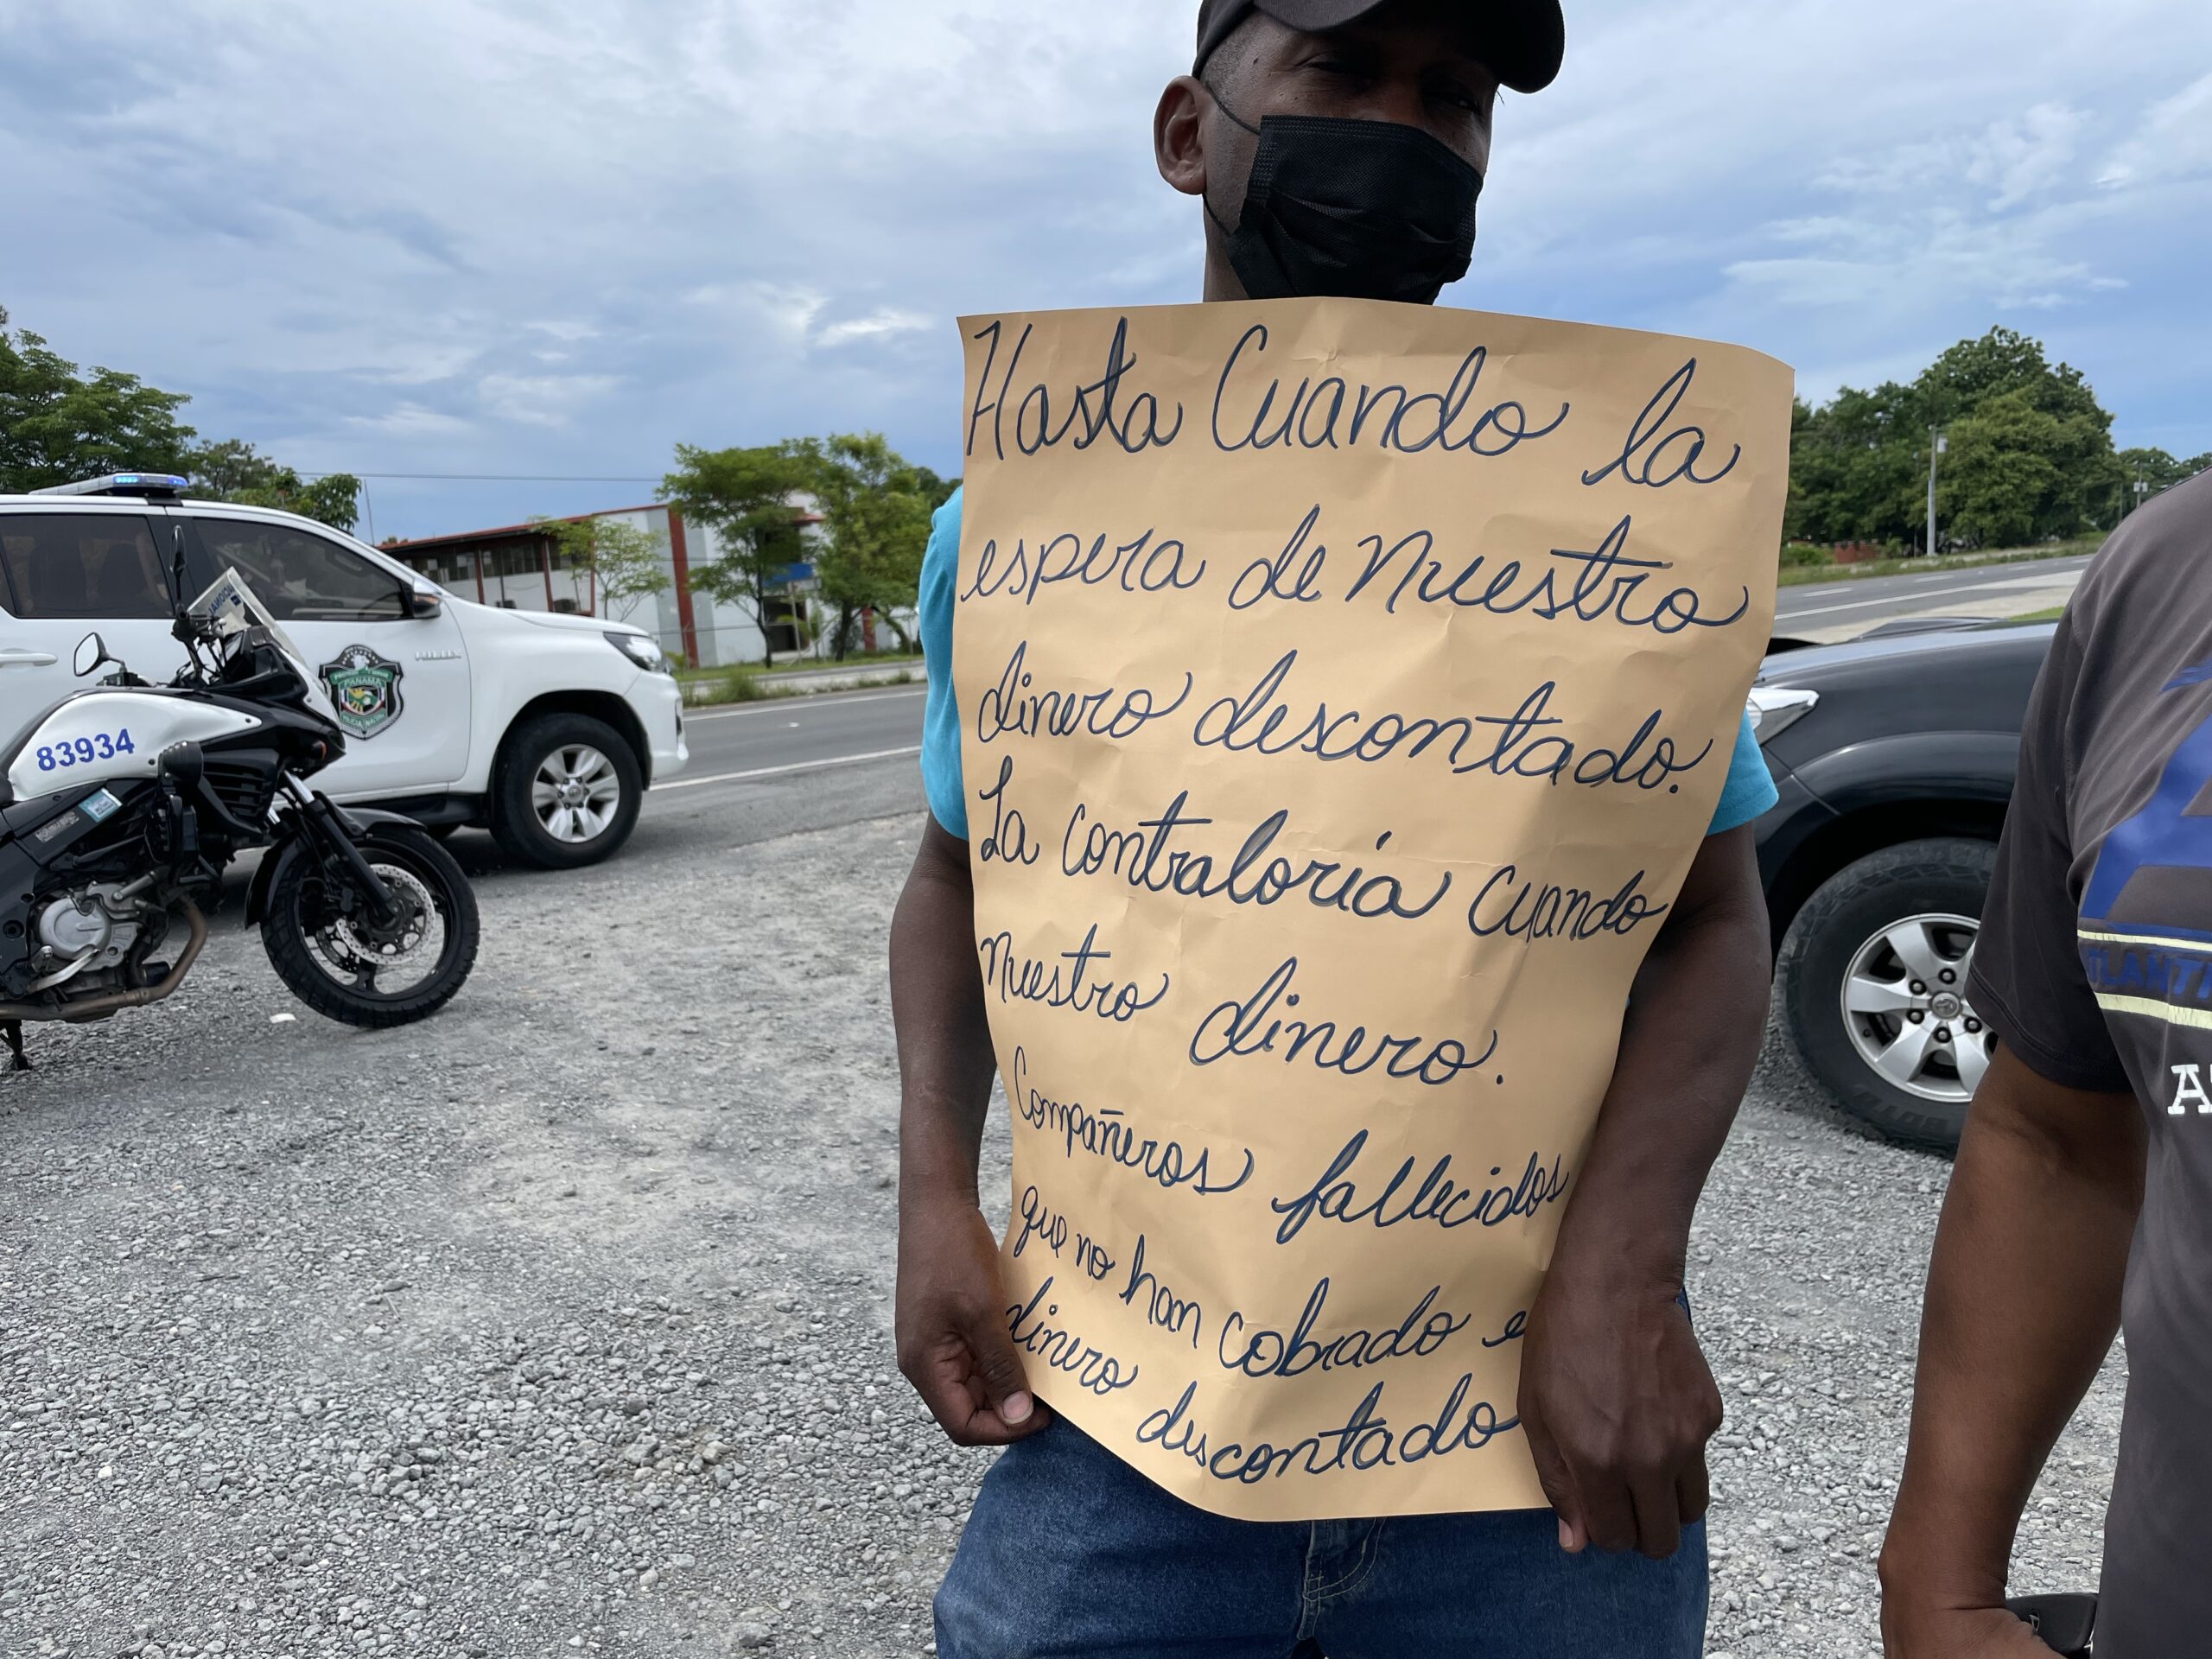 Hasta Cuando la
espera de Nuestro
dinero descontado.
La Contraloría Cuando
Nuestro dinero.
Compañeros fallecidos
que no han Cobrado e
dinero descontado
83934
PANAMA
HILUX
ATLANT
A